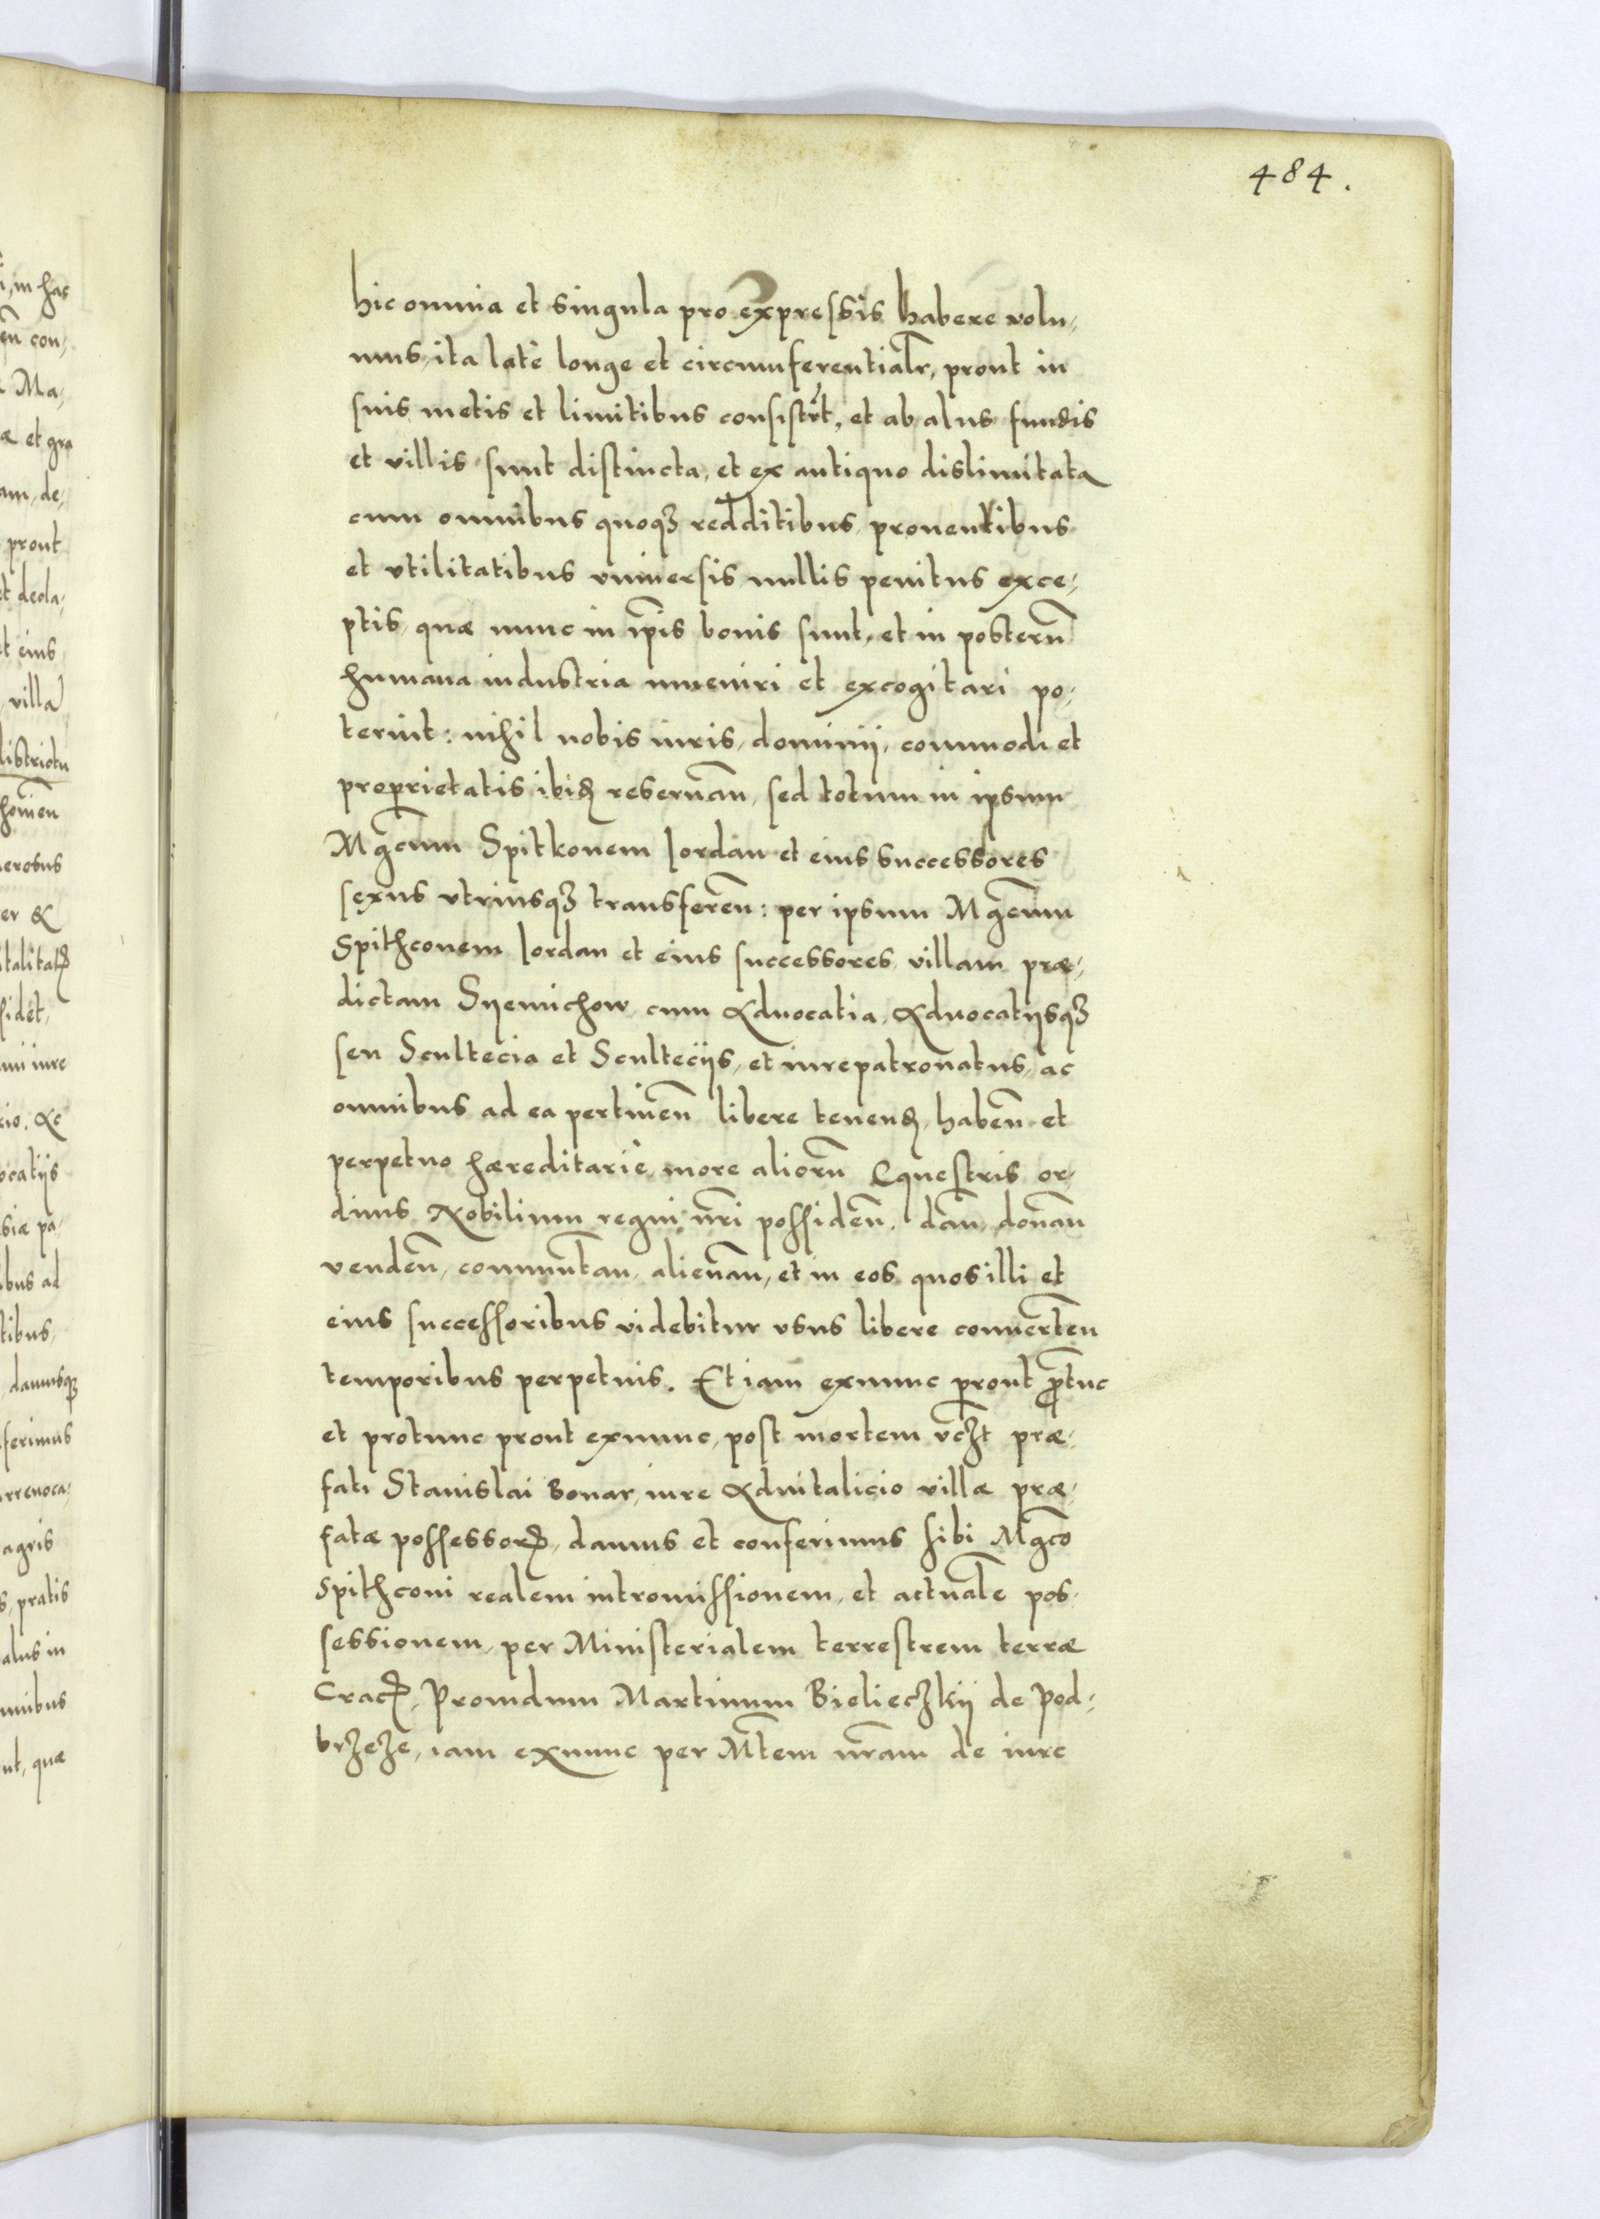 484.
hic omnia et singula pro expressis habere volu-
mus, ita late longe et circumferentialr, prout in
suis metis et limitibus consistut, et ab alijs fundis
et villis sunt distincta, et ex antiquo dislimitata
cum omnibus quoqꝫ redditibus, prouentibus
et vtilitatibus vniuersis nullis penitus exce-
ptis, quæ nunc in ip̄is bonis sunt, et in posterū
humana industria inueniri et excogitari po-
terint: nihil nobis iuris, dominij, commodi et
proprietatis ibid reseruan̄, sed totum in ipsum
Mgcum Spitkonem Jordan et eius successores
sexus vtriusqꝫ transferen̄: per ipsum Mgcum
Spithconem Jordan et eius successores villam præ-
dictam Syemichow cum Aduocatia, Aduocatijsqꝫ
seu Scultecia et Scultecijs, et iurepatronatus, ac
omnibus ad ea pertinen̄ libere tenend, haben̄ et
perpetuo hæreditariè more aliorū Equestris or-
dinis Nobilium regni nr̄i possiden̄. dan̄, donan̄
venden̄, commutan̄, alienan̄, et in eos quos illi et
eius successoribus videbitur vsus libere conuerten̄
temporibus perpetuis. Et iam exnunc prout protūc
et protunc prout exnunc, post mortem vcꝫt præ-
fati Stanislai Bonar, iure Aduitalicio villæ præ-
fatæ possessoris, damus et conferimus sibi Mgco
Spithconi realem intromissionem, et actualē pos-
sessionem, per Ministerialem terrestrem terræ
Crac̄, Prouidum Martinum Bielieczkij de Pod-
brzeze, iam exnunc per Mtem nr̄am de iure